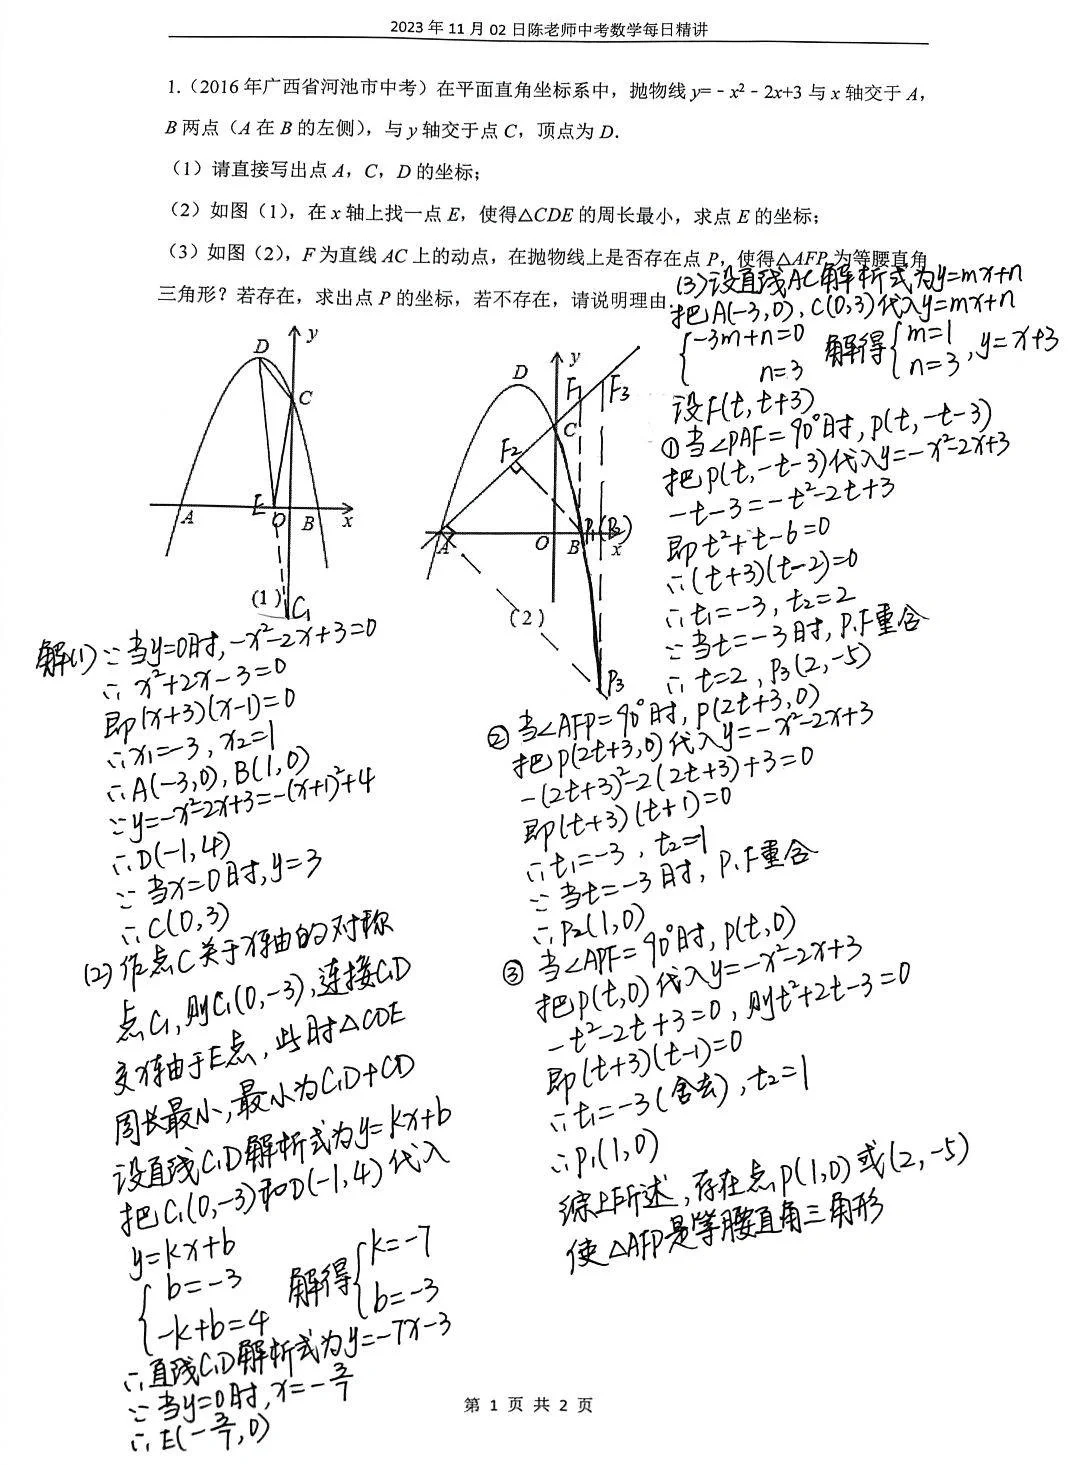 2023年11月02日陈老师中考数学每日精讲
1.（2016年广西省河池市中考）在平面直角坐标系中，抛物线y=﹣x²﹣2x+3与x轴交于A，
B两点（A在B的左侧），与y轴交于点C，顶点为D．
（1）请直接写出点A，C，D的坐标；
（2）如图（1），在x轴上找一点E，使得△CDE的周长最小，求点E的坐标；
（3）如图（2），F为直线AC上的动点，在抛物线上是否存在点P，使得△AFP为等腰直角
三角形？若存在，求出点P的坐标，若不存在，请说明理由．
D
y
C
A
E
O
B
x
C₁
（1）
D
y
F₁
F₃
C
F₂
A
O
B
P₁(P₂)
x
（2）
P₃
解(1)∵当y=0时,-x²-2x+3=0
∴x²+2x-3=0
即(x+3)(x-1)=0
∴x₁=-3, x₂=1
∴A(-3,0), B(1,0)
∵y=-x²-2x+3=-(x+1)²+4
∴D(-1,4)
∵当x=0时,y=3
∴C(0,3)
(2)作点C关于x轴的对称
点C₁,则C₁(0,-3),连接C₁D
交x轴于E点,此时△CDE
周长最小,最小为C₁D+CD
设直线C₁D解析式为y=kx+b
把C₁(0,-3)和D(-1,4)代入
y=kx+b
{b=-3
-k+b=4 解得{k=-7
b=-3
∴直线C₁D解析式为y=-7x-3
∵当y=0时,x=-3/7
∴E(-3/7,0)
(3)设直线AC解析式为y=mx+n
把A(-3,0),C(0,3)代入y=mx+n
{-3m+n=0
n=3 解得{m=1
n=3 ,y=x+3
设F(t,t+3)
①当∠PAF=90°时,P(t,-t-3)
把P(t,-t-3)代入y=-x²-2x+3
-t-3=-t²-2t+3
即t²+t-6=0
∴(t+3)(t-2)=0
∴t₁=-3, t₂=2
∵当t=-3时,P、F重合
∴t=2, P₃(2,-5)
②当∠AFP=90°时,P(2t+3,0)
把P(2t+3,0)代入y=-x²-2x+3
-(2t+3)²-2(2t+3)+3=0
即(t+3)(t+1)=0
∴t₁=-3, t₂=-1
∵当t=-3时,P、F重合
∴P₂(1,0)
③当∠APF=90°时,P(t,0)
把P(t,0)代入y=-x²-2x+3
-t²-2t+3=0,则t²+2t-3=0
即(t+3)(t-1)=0
∴t₁=-3(舍去), t₂=1
∴P₁(1,0)
综上所述,存在点P(1,0)或(2,-5)
使△AFP是等腰直角三角形
第 1 页 共 2 页